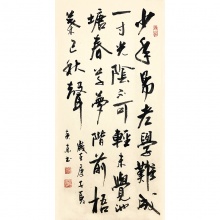 少年易老學難成
一寸光陰不可輕未覺池
塘春草夢階前梧
葉已秋聲
書